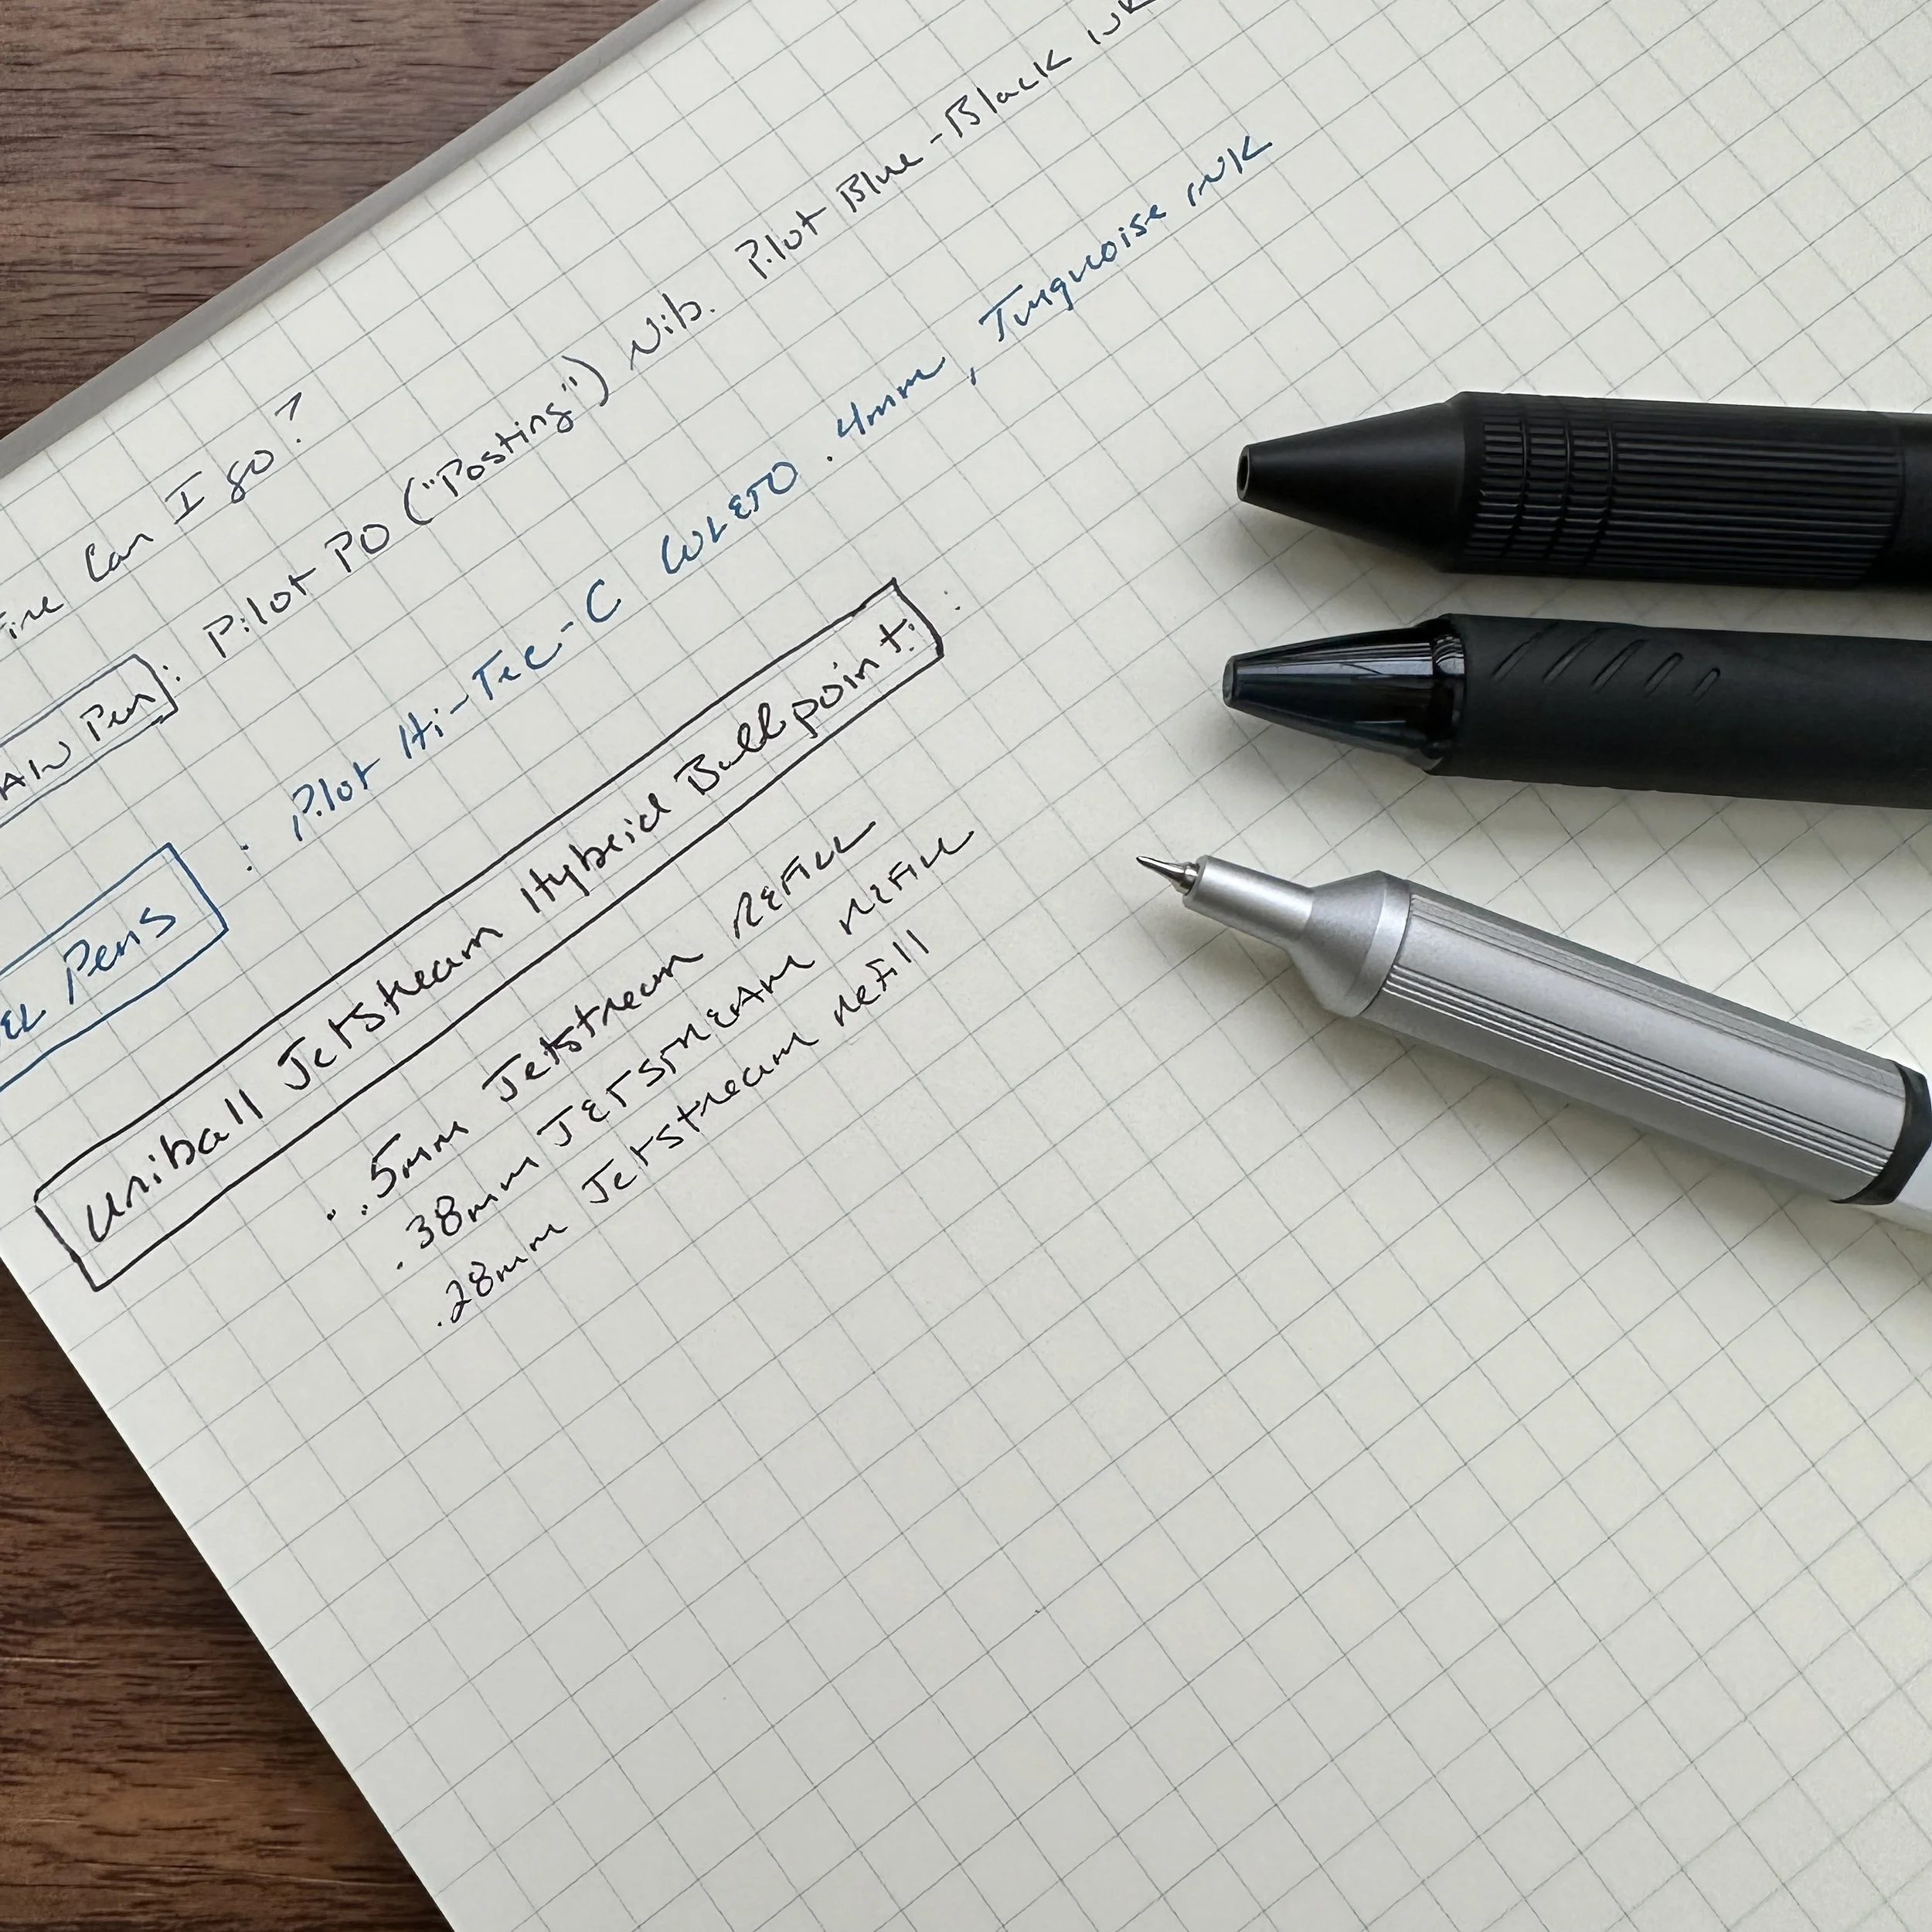 Fine Can I go?
Pen: Pilot PO ("Posting") Nib. Pilot Blue-Black INK
Pens : Pilot Hi-Tec-C COLETO .4mm, Turquoise INK
Uniball Jetstream Hybrid Ballpoint:
.5mm Jetstream REFILL
.38mm JETSTREAM REFILL
.28mm Jetstream refill